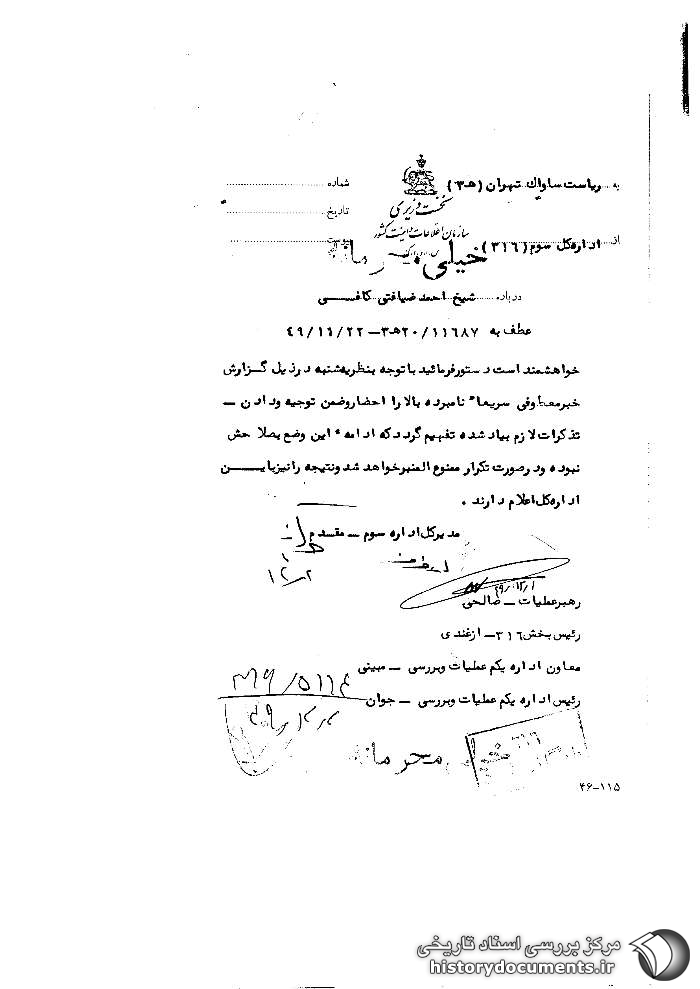 به ریاست ساواک تهران (ه‍ ۳)
شماره
نخست وزیری
تاریخ
سازمان اطلاعات و امنیت کشور
از اداره کل سوم (۳۱۶)
خیلی محرمانه
درباره شیخ احمد ضیافتی کافی
عطف به ۲۰/۱۱۶۸۷ه‍ ۳-۴۹/۱۱/۲۲
خواهشمند است دستور فرمائید با توجه بنظریه شنبه در ذیل گزارش
خبر معطوفی سریعا" نامبرده بالا را احضار و ضمن توجیه و دادن -
تذکرات لازم بیاد شده تفهیم گردد که ادامه این وضع بصلاحش
نبوده و در صورت تکرار ممنوع المنبر خواهد شد و نتیجه را نیز باین
اداره کل اعلام دارند .
مدیرکل اداره سوم - مقدم
۱۲/۲
۴۹/۱۲/۱
رهبر عملیات - صالحی
رئیس بخش ۳۱۶ - ازغندی
معاون اداره یکم عملیات و بررسی - مبینی
رئیس اداره یکم عملیات و بررسی - جوان
۳۱۶/۵۱۱۴
۴۹/۱۲/۲
۳۱۶
خیلی محرمانه
۴۶-۱۱۵
مرکز بررسی اسناد تاریخی
historydocuments.ir